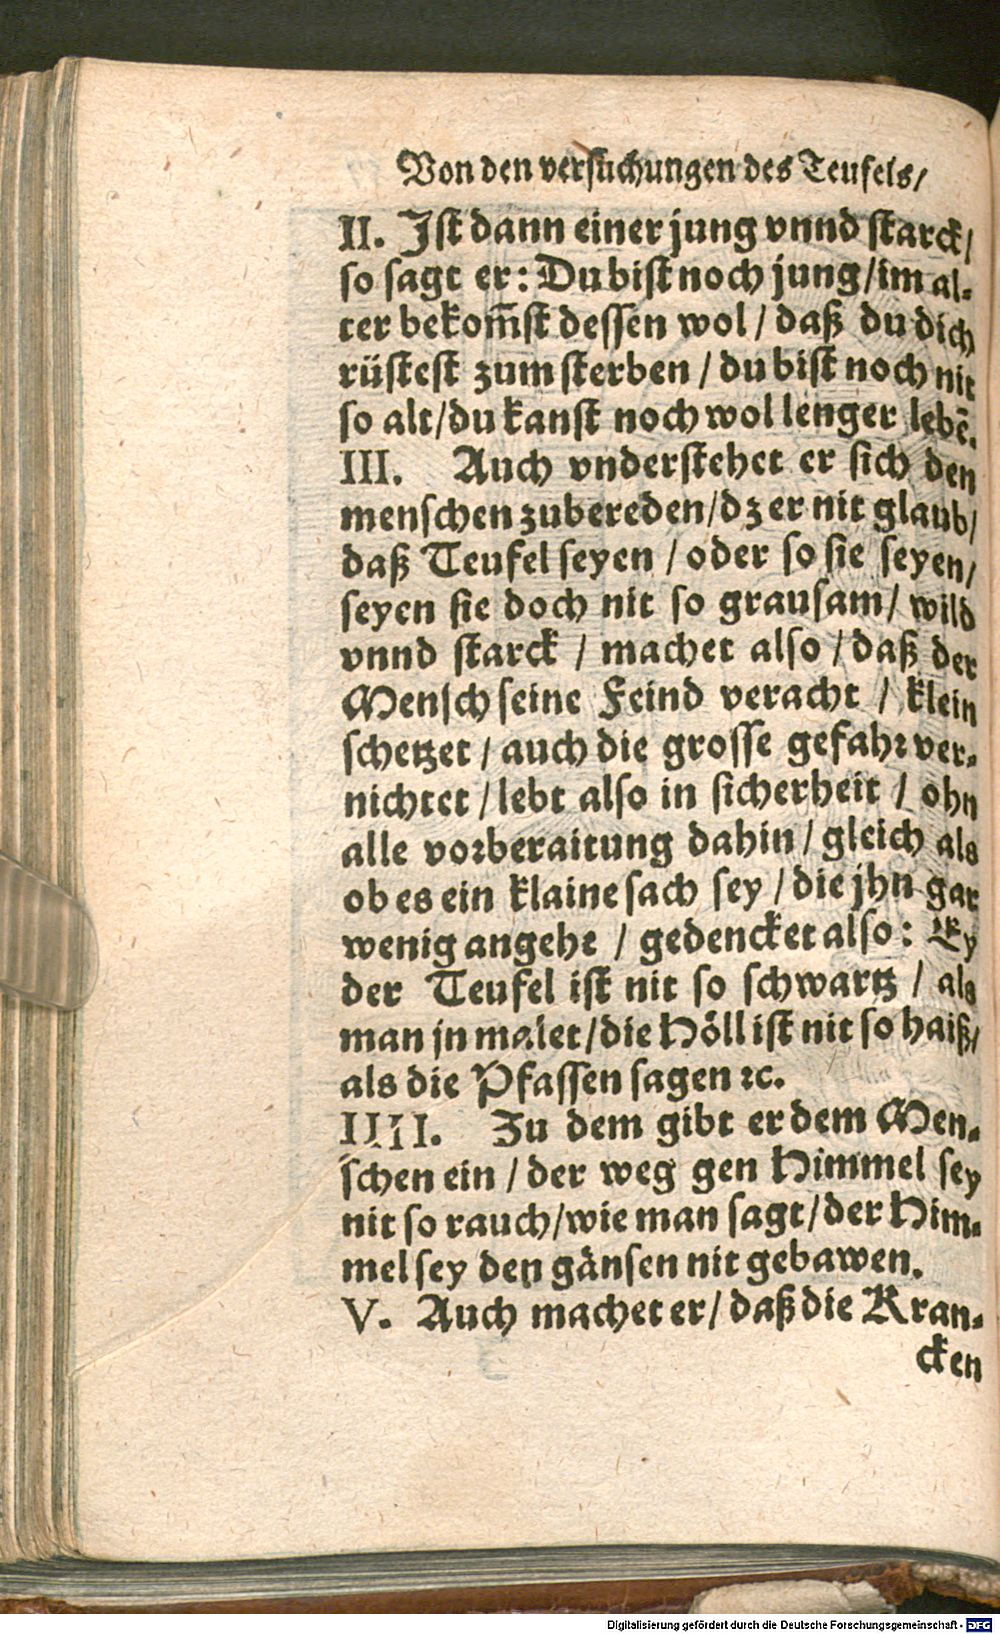 Von den versuchungen des Teufels/
II. Jst dann einer jung vnnd starck/
so sagt er: Du bist noch jung/im al-
ter bekom̃st dessen wol/ daß du dich
rüstest zum sterben / du bist noch nit
so alt/du kanst noch wol lenger lebẽ.
III. Auch vnderstehet er sich den
menschen zubereden/dz er nit glaub/
daß Teufel seyen / oder so sie seyen/
seyen sie doch nit so grausam/ wild
vnnd starck / machet also / daß der
Mensch seine Feind veracht / klein
schetzet / auch die grosse gefahr ver-
nichtet / lebt also in sicherheit / ohn
alle vorberaitung dahin / gleich als
ob es ein klaine sach sey / die jhn gar
wenig angeht / gedencket also: Ey
der Teufel ist nit so schwartz / als
man jn malet/die Höll ist nit so haiß/
als die Pfaffen sagen ꝛc.
IIII. Zu dem gibt er dem Men-
schen ein / der weg gen Himmel sey
nit so rauch/wie man sagt/der Him-
mel sey den gänsen nit gebawen.
V. Auch machet er/ daß die Kran-
cken
Digitalisierung gefördert durch die Deutsche Forschungsgemeinschaft - DFG